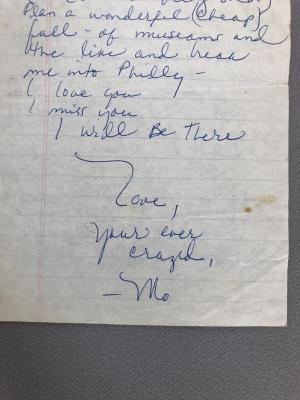 Plan a wonderful (cheap)
fall - of museams and
the like and break
me into Philly -
I love you
I miss you
I will Be There
Love,
Your ever
crazed,
- Mo